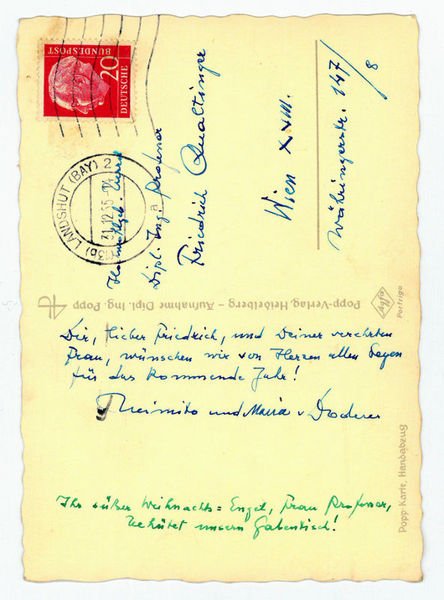 20
DEUTSCHE
BUNDESPOST
(13b) LANDSHUT (BAY) 2
31.12.55
a
Hochwohlgeb. Herrn
Dipl. Ing. Professor
Friedrich Qualtinger
Wien XVIII.
Währingerstr. 147/8
Popp-Verlag, Heidelberg – Aufnahme Dipl. Ing. Popp
Agfa
Portriga
Dir, lieber Friedrich, und Deiner verehrten
Frau, wünschen wir von Herzen allen Segen
für das kommende Jahr!
Heimito und Maria v Doderer
Popp-Karte, Handabzug
Ihr süßer Weihnachts=Engel, Frau Professor,
behütet unsern Gabentisch!